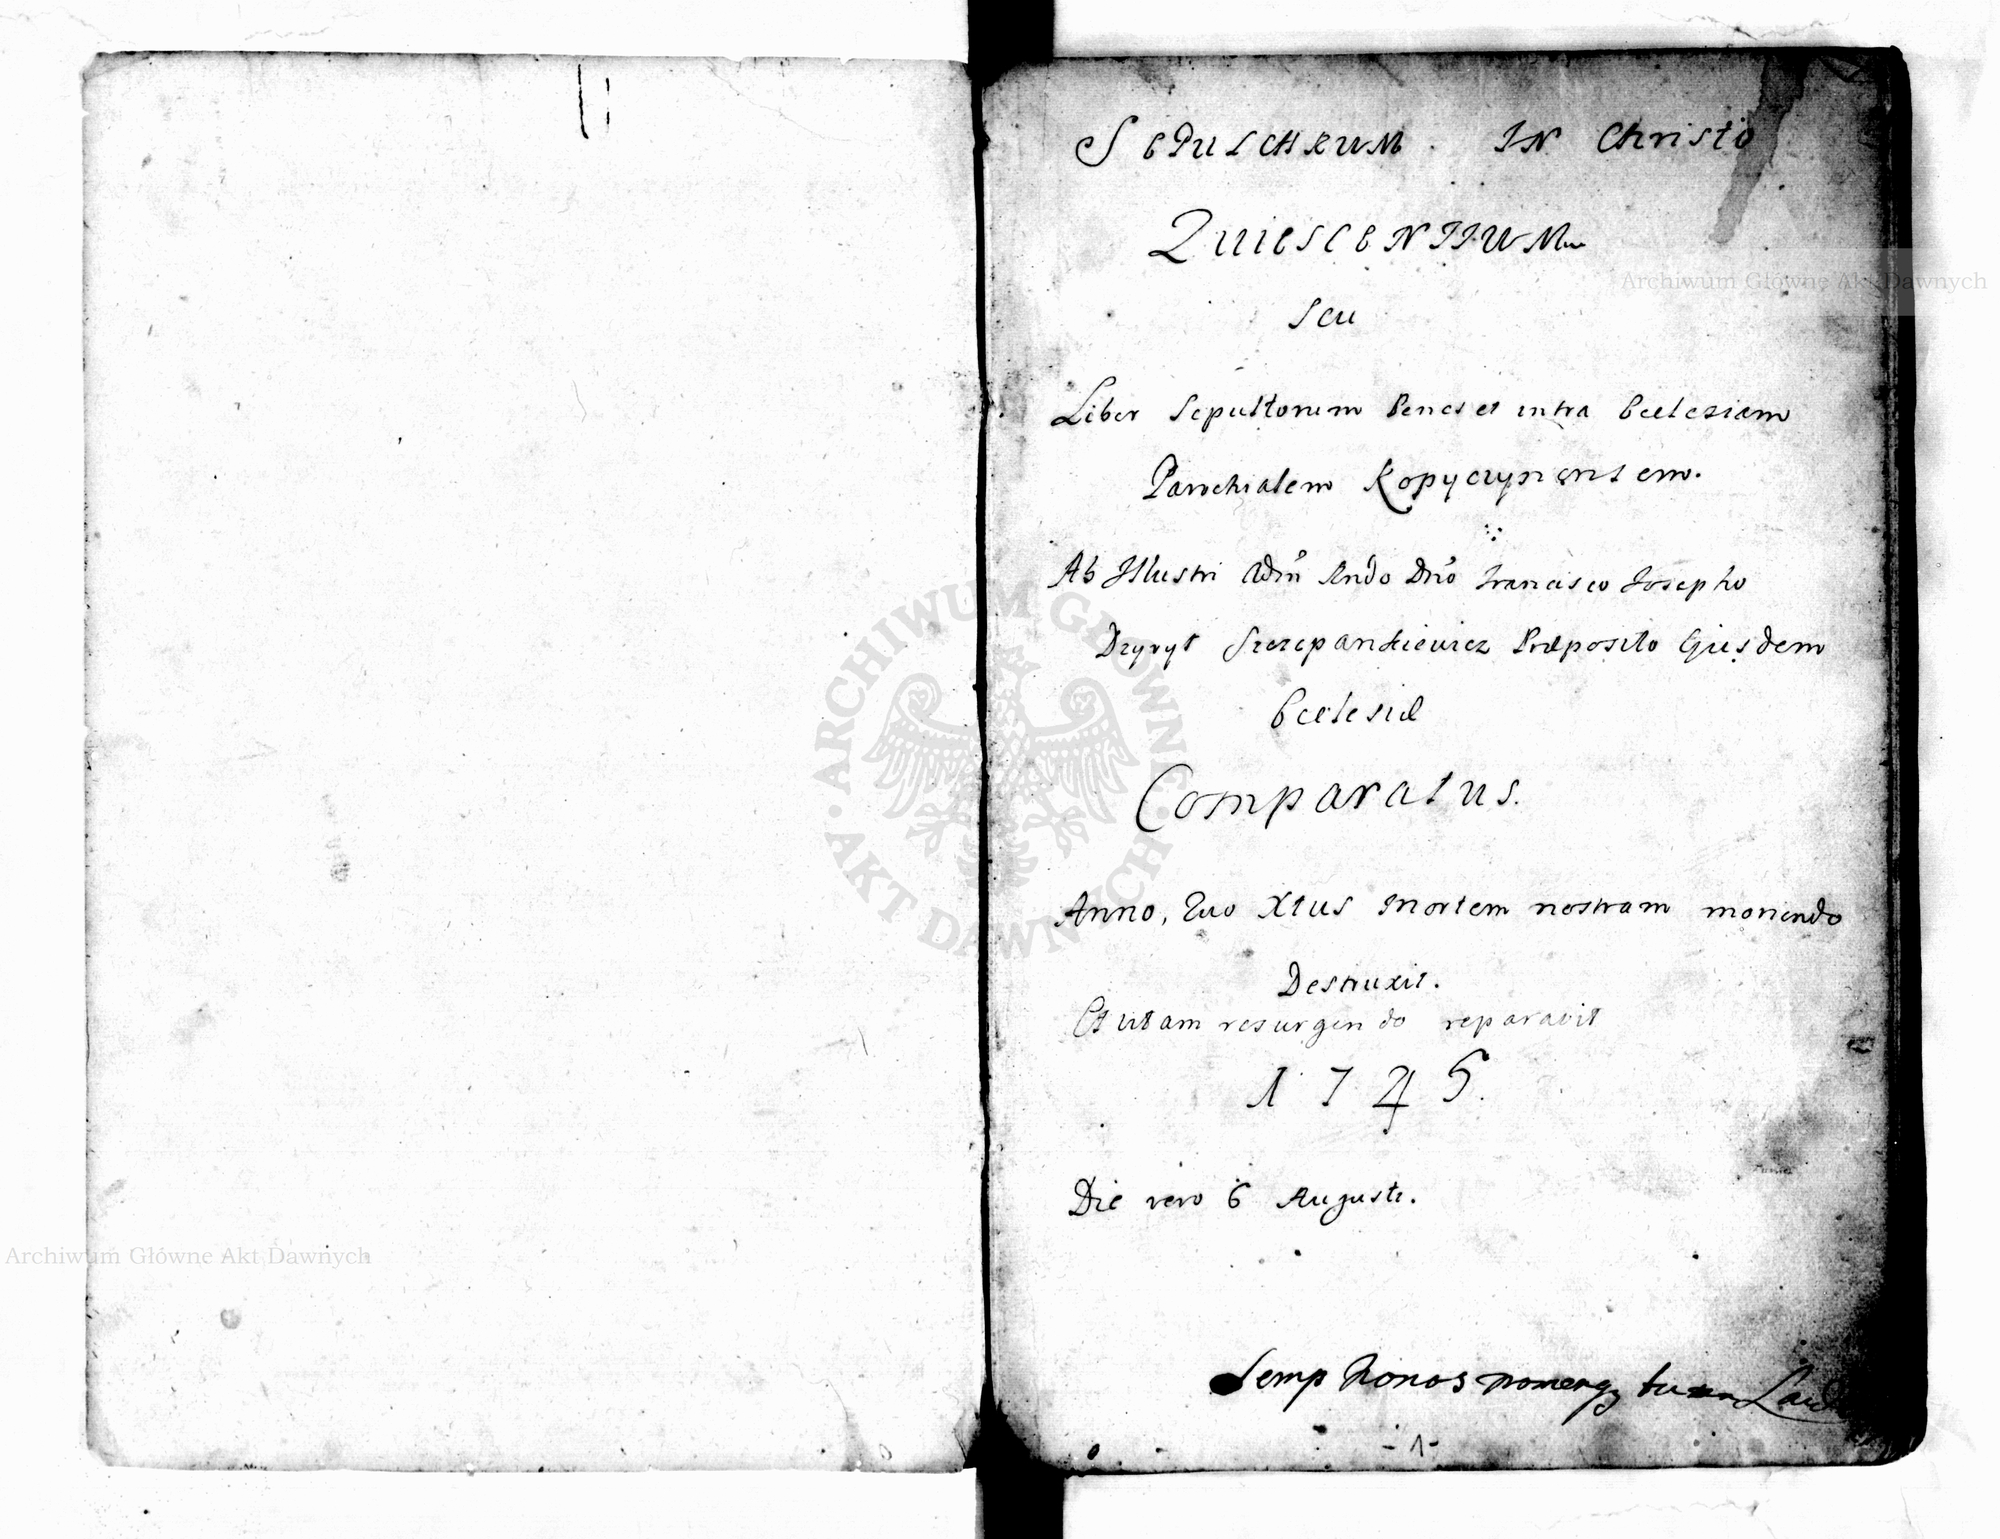 SEPULCHRUM. IN Christo
QUIESCENTIUM
seu
Liber Sepultorum Penes et intra Ecclesiam
Parochialem Kopyczynensem.
Ab Illustri Adm̃ Rndo Dño Francisco Josepho
Dzyryt Szczepankiewicz Præposito Ejusdem
Ecclesiæ
Comparatus.
Anno, Quo Xtus mortem nostram moriendo
Destruxit.
Et vitam resurgendo reparavit
1745.
Die vero 6 Augusti.
Semp honos nomenq tuum
-1-
Archiwum Główne Akt Dawnych
Archiwum Główne Akt Dawnych
ARCHIWUM GŁÓWNE
· AKT DAWNYCH ·